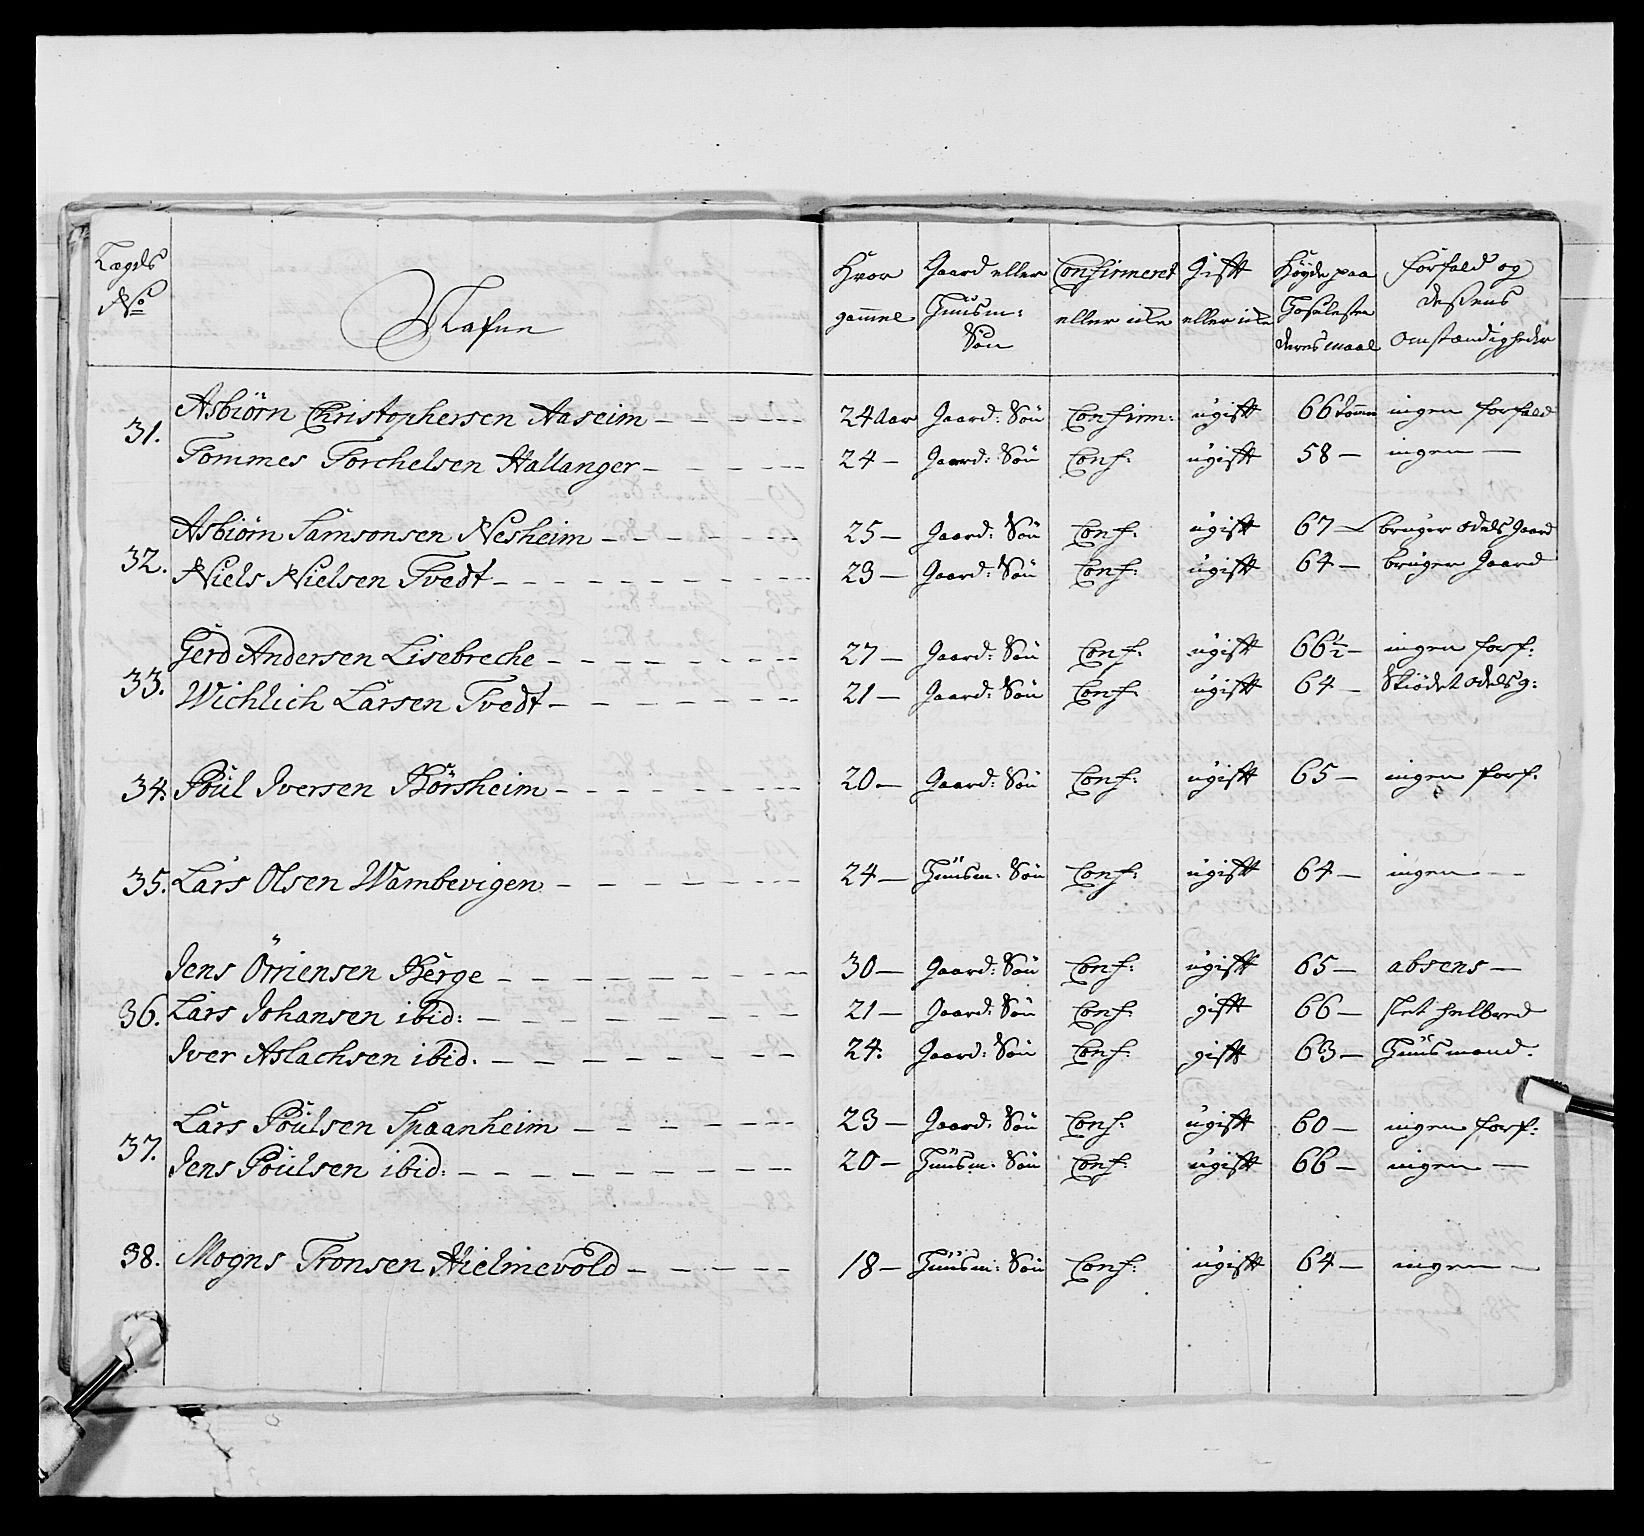 Lægds No | Nafne | Hvor gammel | Gaard eller Huusm: Søn | Confirmeret eller icke | Gift eller icke | Høyde paa Hosulesten deres maal | Forfald og dessens Omstændigheder
31. Asbiörn Christophersen Aaseim - - - - | 24 Aar | Gaard: Søn | Confirm: | ugift | 66 Tommer | ingen forfald
Tommes Torchelsen Hallanger - - - - | 24 - | Gaard: Søn | Conf: | ugift | 58 - | ingen -
32. Asbiörn Samsonsen Nesheim - - - - | 25 - | Gaard: Søn | Conf: | ugift | 67 - | bruger odels Gaard
Niels Nielsen Tvedt - - - - | 23 - | Gaard: Søn | Conf: | ugift | 64 - | bruger Gaard
33. Gerd Andersen Lisebreche - - - - | 27 - | Gaard: Søn | Conf: | ugift | 66½ - | ingen forf:
Wichlich Larsen Tvedt - - - - | 21 - | Gaard: Søn | Conf: | ugift | 64 - | Skiödet odelsg:
34. Poul Iversen Börsheim - - - - | 20 - | Gaard: Søn | Conf: | ugift | 65 - | ingen forf:
35. Lars Olsen Wambevigen - - - - | 24 - | Huusm: Søn | Conf: | ugift | 64 - | ingen - -
36. Jens Örriensen Berge - - - - | 30 - | Gaard: Søn | Conf: | ugift | 65 - | absens -
Lars Johansen ibid: - - - - | 21 - | Gaard: Søn | Conf: | gift | 66 - | slet helbred
Iver Aslachsen ibid. - - - - | 24. | Gaard: Søn | Conf: | gift | 63 - | Huusmand.
37. Lars Poulsen Spaanheim - - - - | 23 - | Gaard: Søn | Conf: | ugift | 60 - | ingen forf:
Jens Poulsen ibid: - - - - | 20 - | Huusm: Søn | Conf: | ugift | 66 - | ingen -
38. Mogns Tronsen Hielmevold - - - - | 18 - | Huusm: Søn | Conf: | ugift | 64 - | ingen -